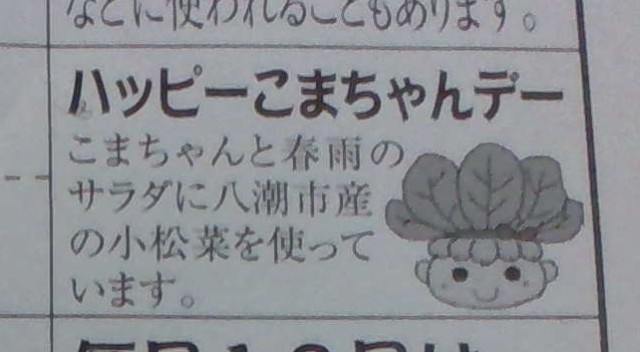 などに使われることもあります。
ハッピーこまちゃんデー
こまちゃんと春雨の
サラダに八潮市産
の小松菜を使って
います。